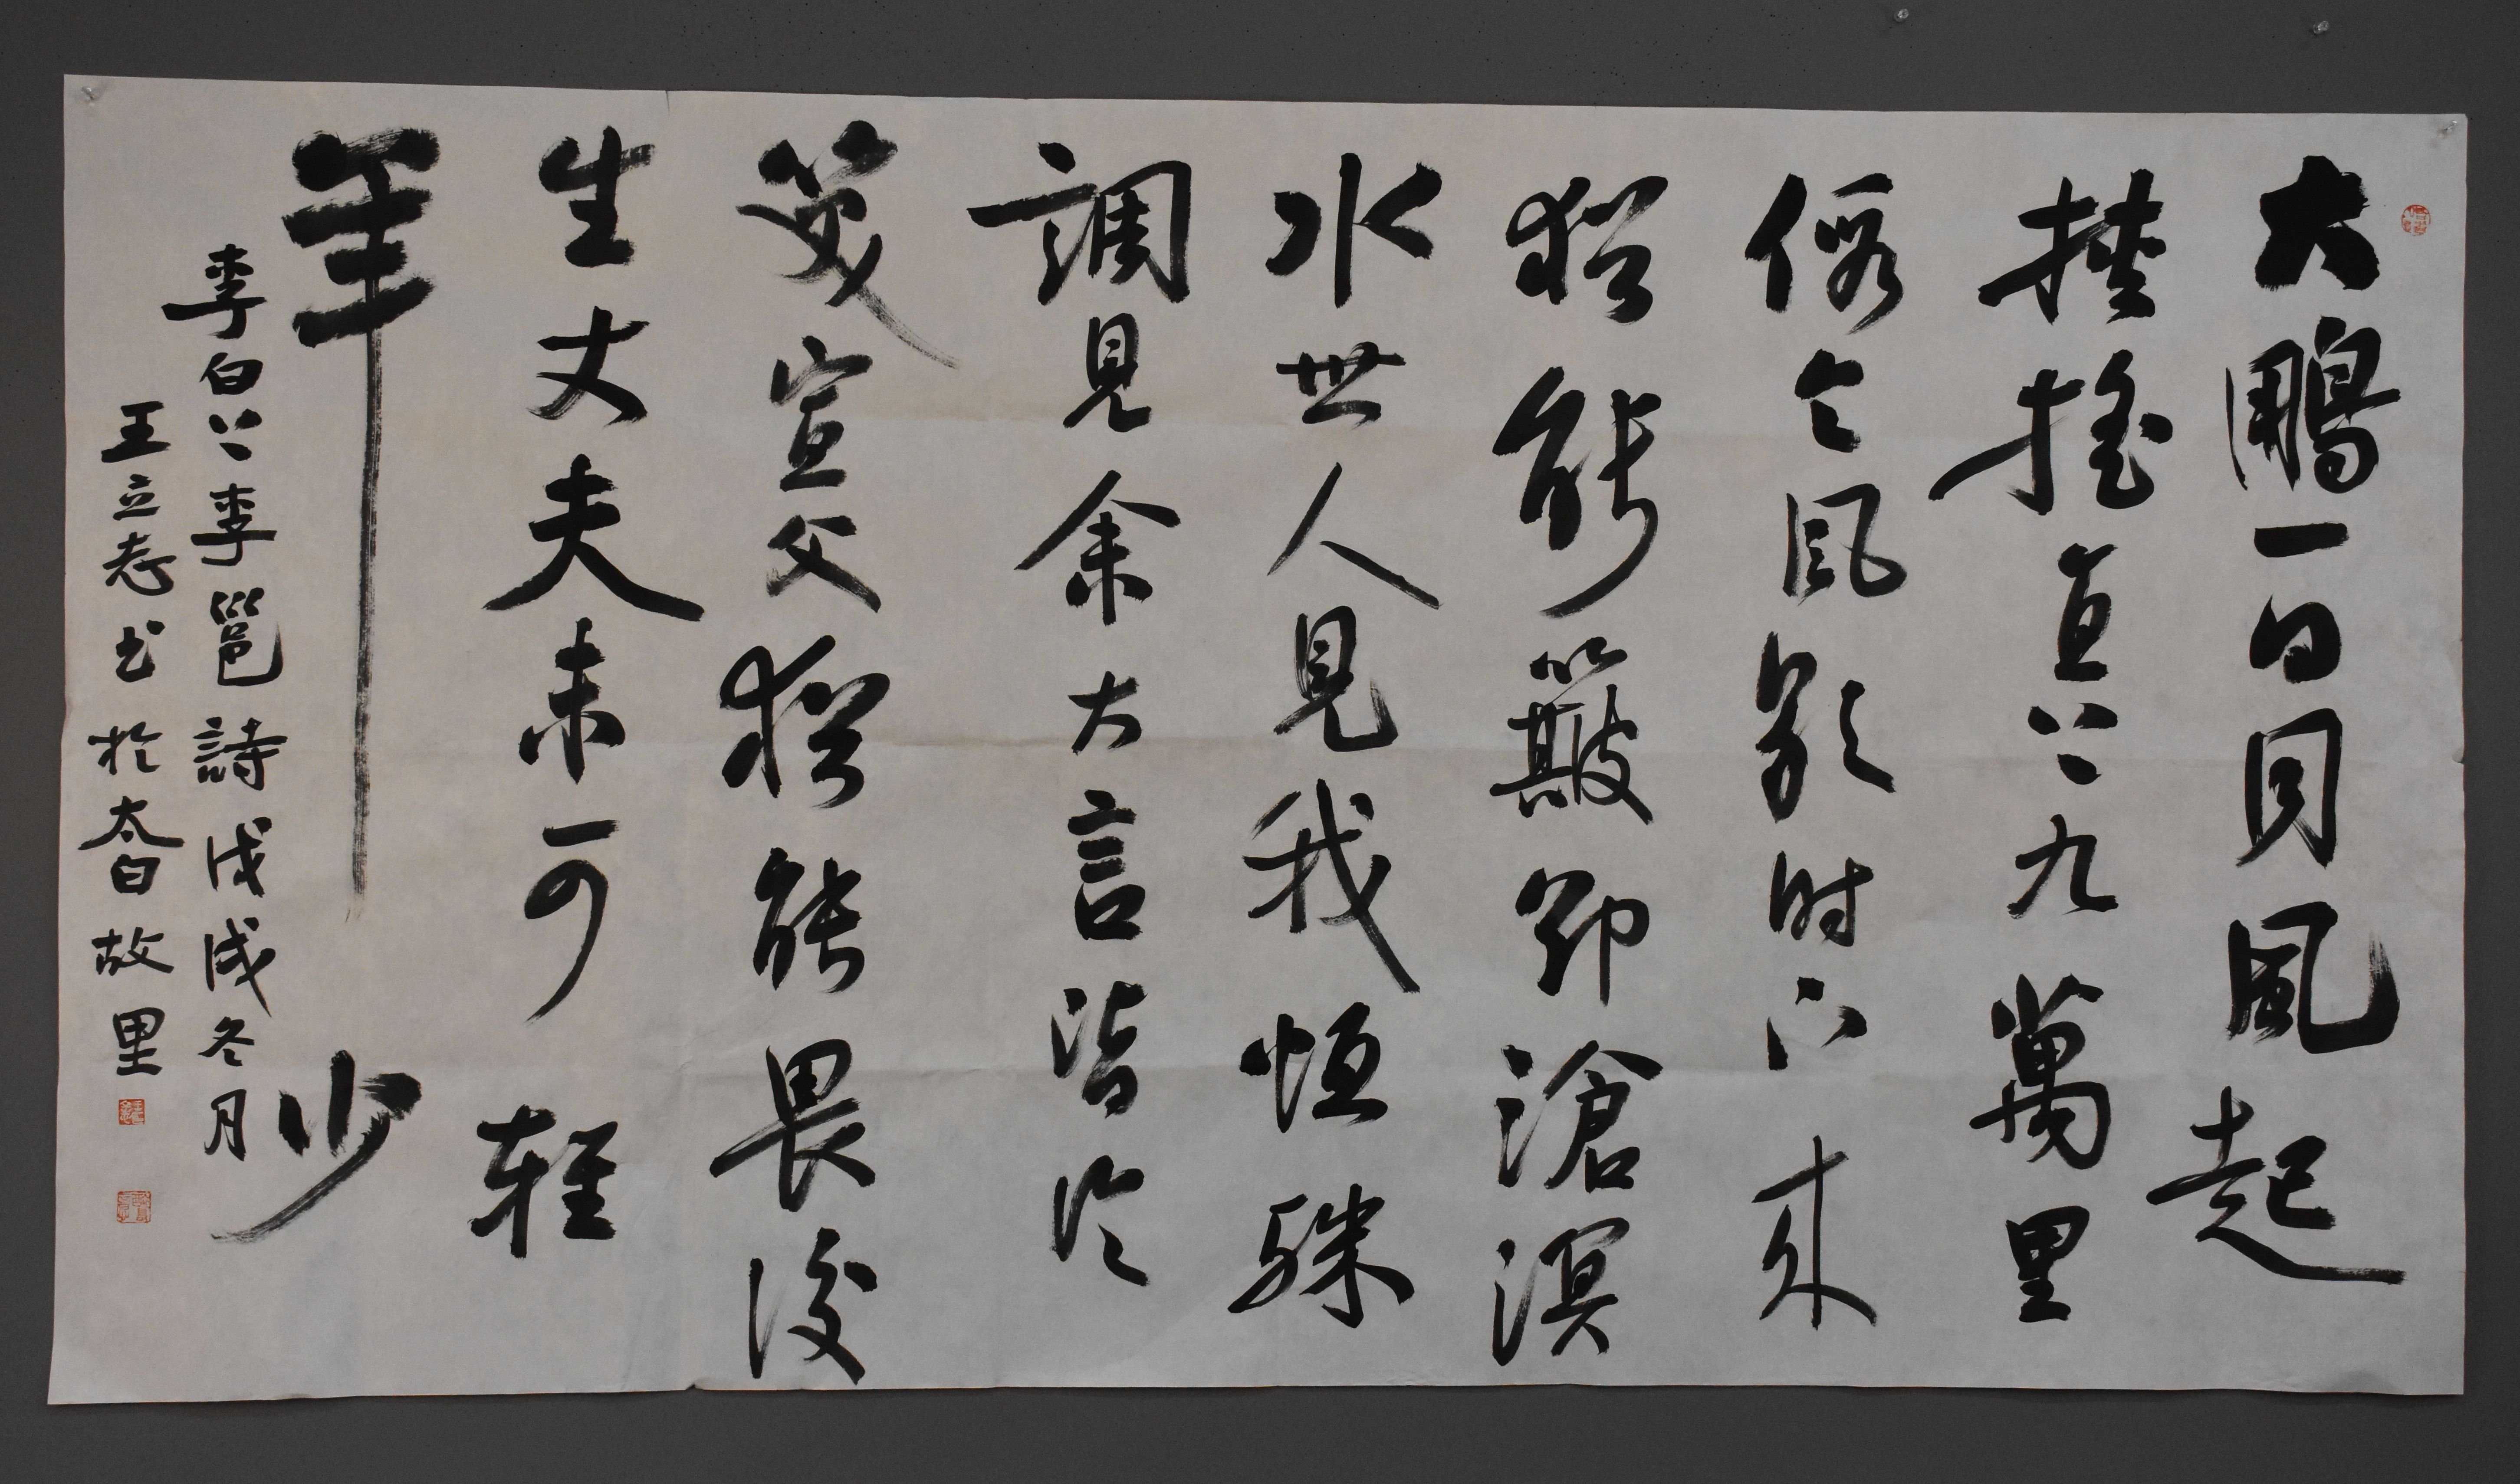 大鵬一日同風起
搖直上九萬里
假令風歇时下來
猶能簸卻滄溟
水世人見我恒殊
調見余大言皆冷
笑宣父猶能畏後
生丈夫未可輕
年少
李白上李邕詩戊戌冬月
王立志书於太白故里